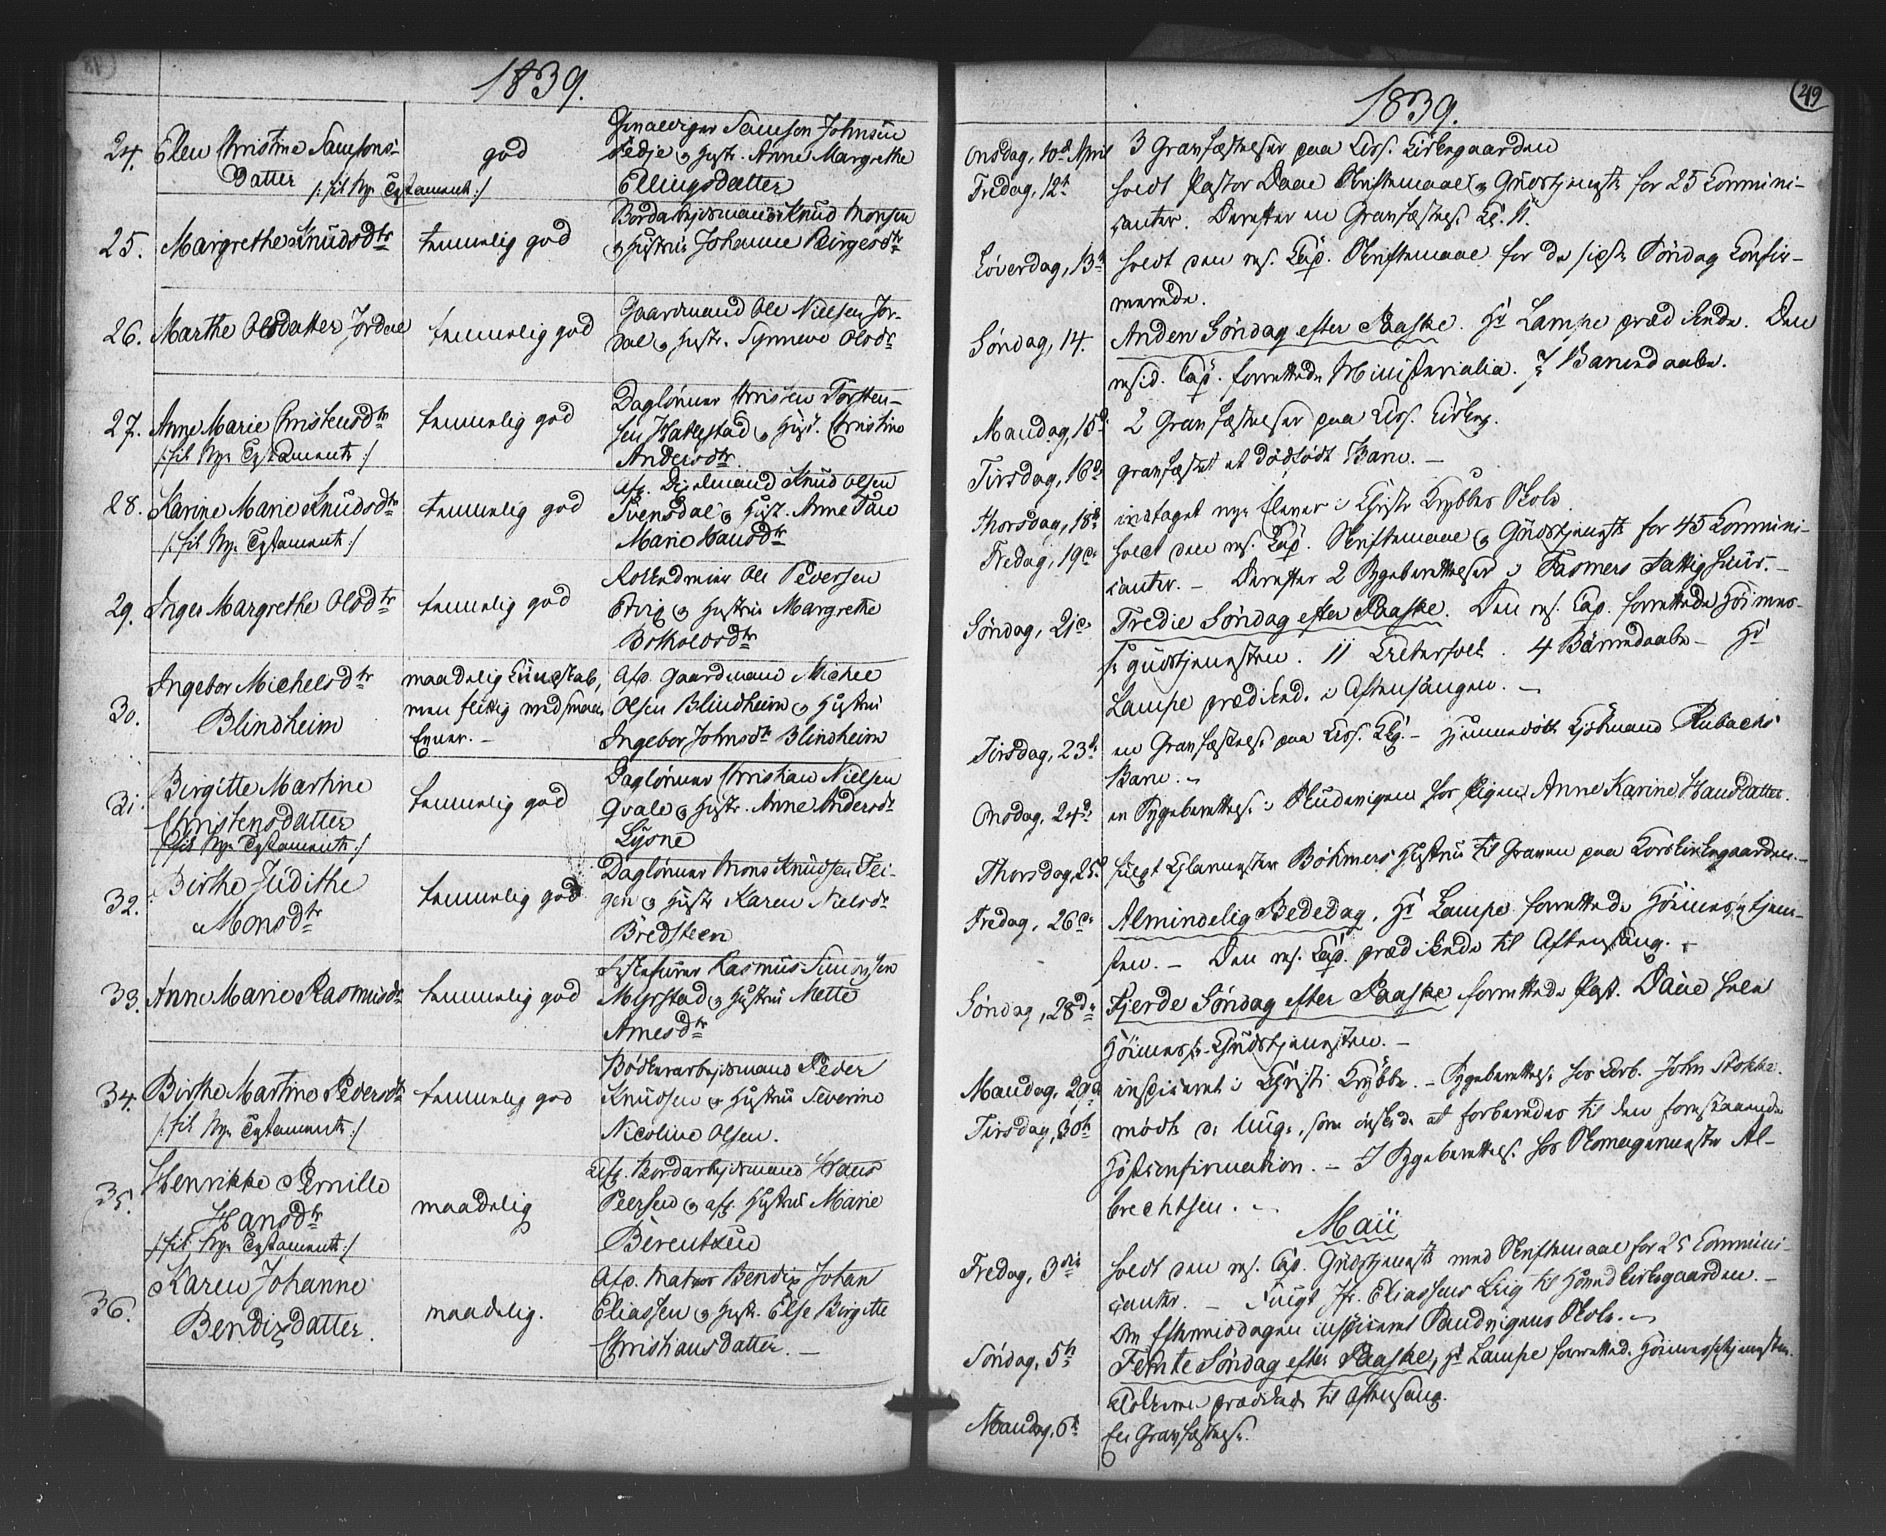 1839.
24. Elen Christine Samsons-
Datter
/: fik Nye Testament :/
god
Samson Johnsen
Tedje og Hustr. Anne Margrethe
Ellingsdatter
25. Margrethe Knudsdtr
temmelig god
Bordarbeidsmand Knud Monsen
og Hustrue Johanne Birgersdtr
26. Marthe Olsdatter Jordal
temmelig god
Gaardmand Ole Nielsen Jor-
dal og Hustr. Synneve Olsdr
27. Anne Marie Christensdtr
/: fik Nye Testamente :/
temmelig god
Daglönner Christen Torsten-
sen Hatlestad og Hust. Christine
Andersdtr
28. Karine Marie Knudsdtr
/: fik Nye Testamente :/
temmelig god
Afg. Knud Olsen
Svensdal og Hust. Anne
Marie Hansdtr
29. Inger Margrethe Olsdtr
temmelig god
Ole Pedersen
og Hustrue Margrethe
30. Ingebor Michelsdtr
Blindheim
maadelig Kundskab,
men flittig med smaa
Evner.-
Afg. Gaardmand Michel
Olsen Blindheim og Hustrue
Ingebor Johnsdtr Blindheim
31. Birgitte Martine
Christensdatter
/: fik Nye Testamente :/
temmelig god
Daglönner Christian Nielsen
Qvale og Hustr. Anne Andersdr
Lysne
32. Birthe Judithe
Monsdtr
temmelig god
Daglönner Mons Knudsen Tei-
gen og Hustr Karen Nielsdr
Bredsteen
33. Anne Marie Rasmusdr
temmelig god
Rasmus Simonsen
Myrstad og Hustrue Mette
Arnesdtr
34. Birthe Martine Pedersdtr
/: fik Nye Testamente :/
temmelig god
Bödkerarbeidsmand Peder
Knudsen og Hustrue Severine
Nicoline Olsen.
35. Henrikke Pernille
Hansdtr
/: fik Nye Testamente :/
maadelig
Afg. Bordarbeidsmand Hans
Peersen og afg. Hustrue Marie
Berentzen
36. Karen Johanne
Bendixdatter.
maadelig.
Afg. Matros Bendix Johan
Eliassen og Hustr. Else Birgitte
Christiansdatter. -
49
1839.
Onsdag, 10d April 3 Gravfæstelser paa Kors. Kirkegaarden
Fredag, 12t holdt Pastor Daae Skriftemaal og Gudstjeneste for 25 Communi-
canter. Derefter en Gravfæstelse
Löverdag, 13t holdt den res. Cap. Skriftemaal for de sidste Söndag Confir-
merede.
Söndag, 14. Anden Söndag efter Paaske. Hr Lampe prædikede. Den
resid. Cap. forrettede Ministerialia. 7 Barnedaabe.
Mandag, 15d 2 Gravfæstelser paa Kors. Kirkeg.
Tirsdag, 16d gravfæstet et dödfödt Barn. -
Thorsdag, 18d indtaget nye Elever i Christi Krybbes Skole.
Fredag, 19de holdt den res. Cap. Skriftemaal og Gudstjeneste for 45 Communi-
canter. - Derefter 2 Sygeberettelser i Fasmers Fattighuus. -
Söndag, 21de Tredie Söndag efter Paaske. Den res. Cap. forrettede Höimes-
se gudstjenesten. 11 Ægtefolk. 4 Barnedaabe - Hr
Lampe prædikede i Aftensangen. -
Tirsdag, 23d en Gravfæstelse paa Kors. Kkg. - hjemmedöbt Kjöbmand Rubachs
Barn. -
Onsdag, 24d en Sygeberettelse i Skudevigen hos Pigen Anne Karine Hansdatter.
Thorsdag, 25d fulgt Glarmester Böhmers Hustrue til Graven paa Korskirkegaarden. -
Fredag, 26de Almindelig Bededag. Hr Lampe forrettede Höimessetjene-
sten. - Den res. Cap. prædikede til Aftensang. -
Söndag, 28de Fjerde Söndag efter Paaske forrettede Past. Daae hele
Höimesse Gudstjenesten. -
Mandag, 29d inspiceret i Christi Krybbe. - Sygeberettelse hos Arb. John Stokke.
Tirsdag, 30te mödte de Unge, som önskede at forberedes til den forestaaende
Höstconfirmation. - 1 Sygeberettelse hos Skomagermester Al-
brechtsen. -
Maii
Fredag, 3die holdt den res. Cap. Gudstjeneste med Skriftemaal for 25 Communi-
canter. - Fulgt Jfr. Eliassens Liig til Hovedkirkegaarden. -
Om Eftermiddagen inspiceret Sandvigens Skole. -
Söndag, 5te Femte Söndag efter Paaske, Hr Lampe forrettede Höimessetjenesten.
prædikede til Aftensang.
Mandag, 6te En Gravfæstelse.